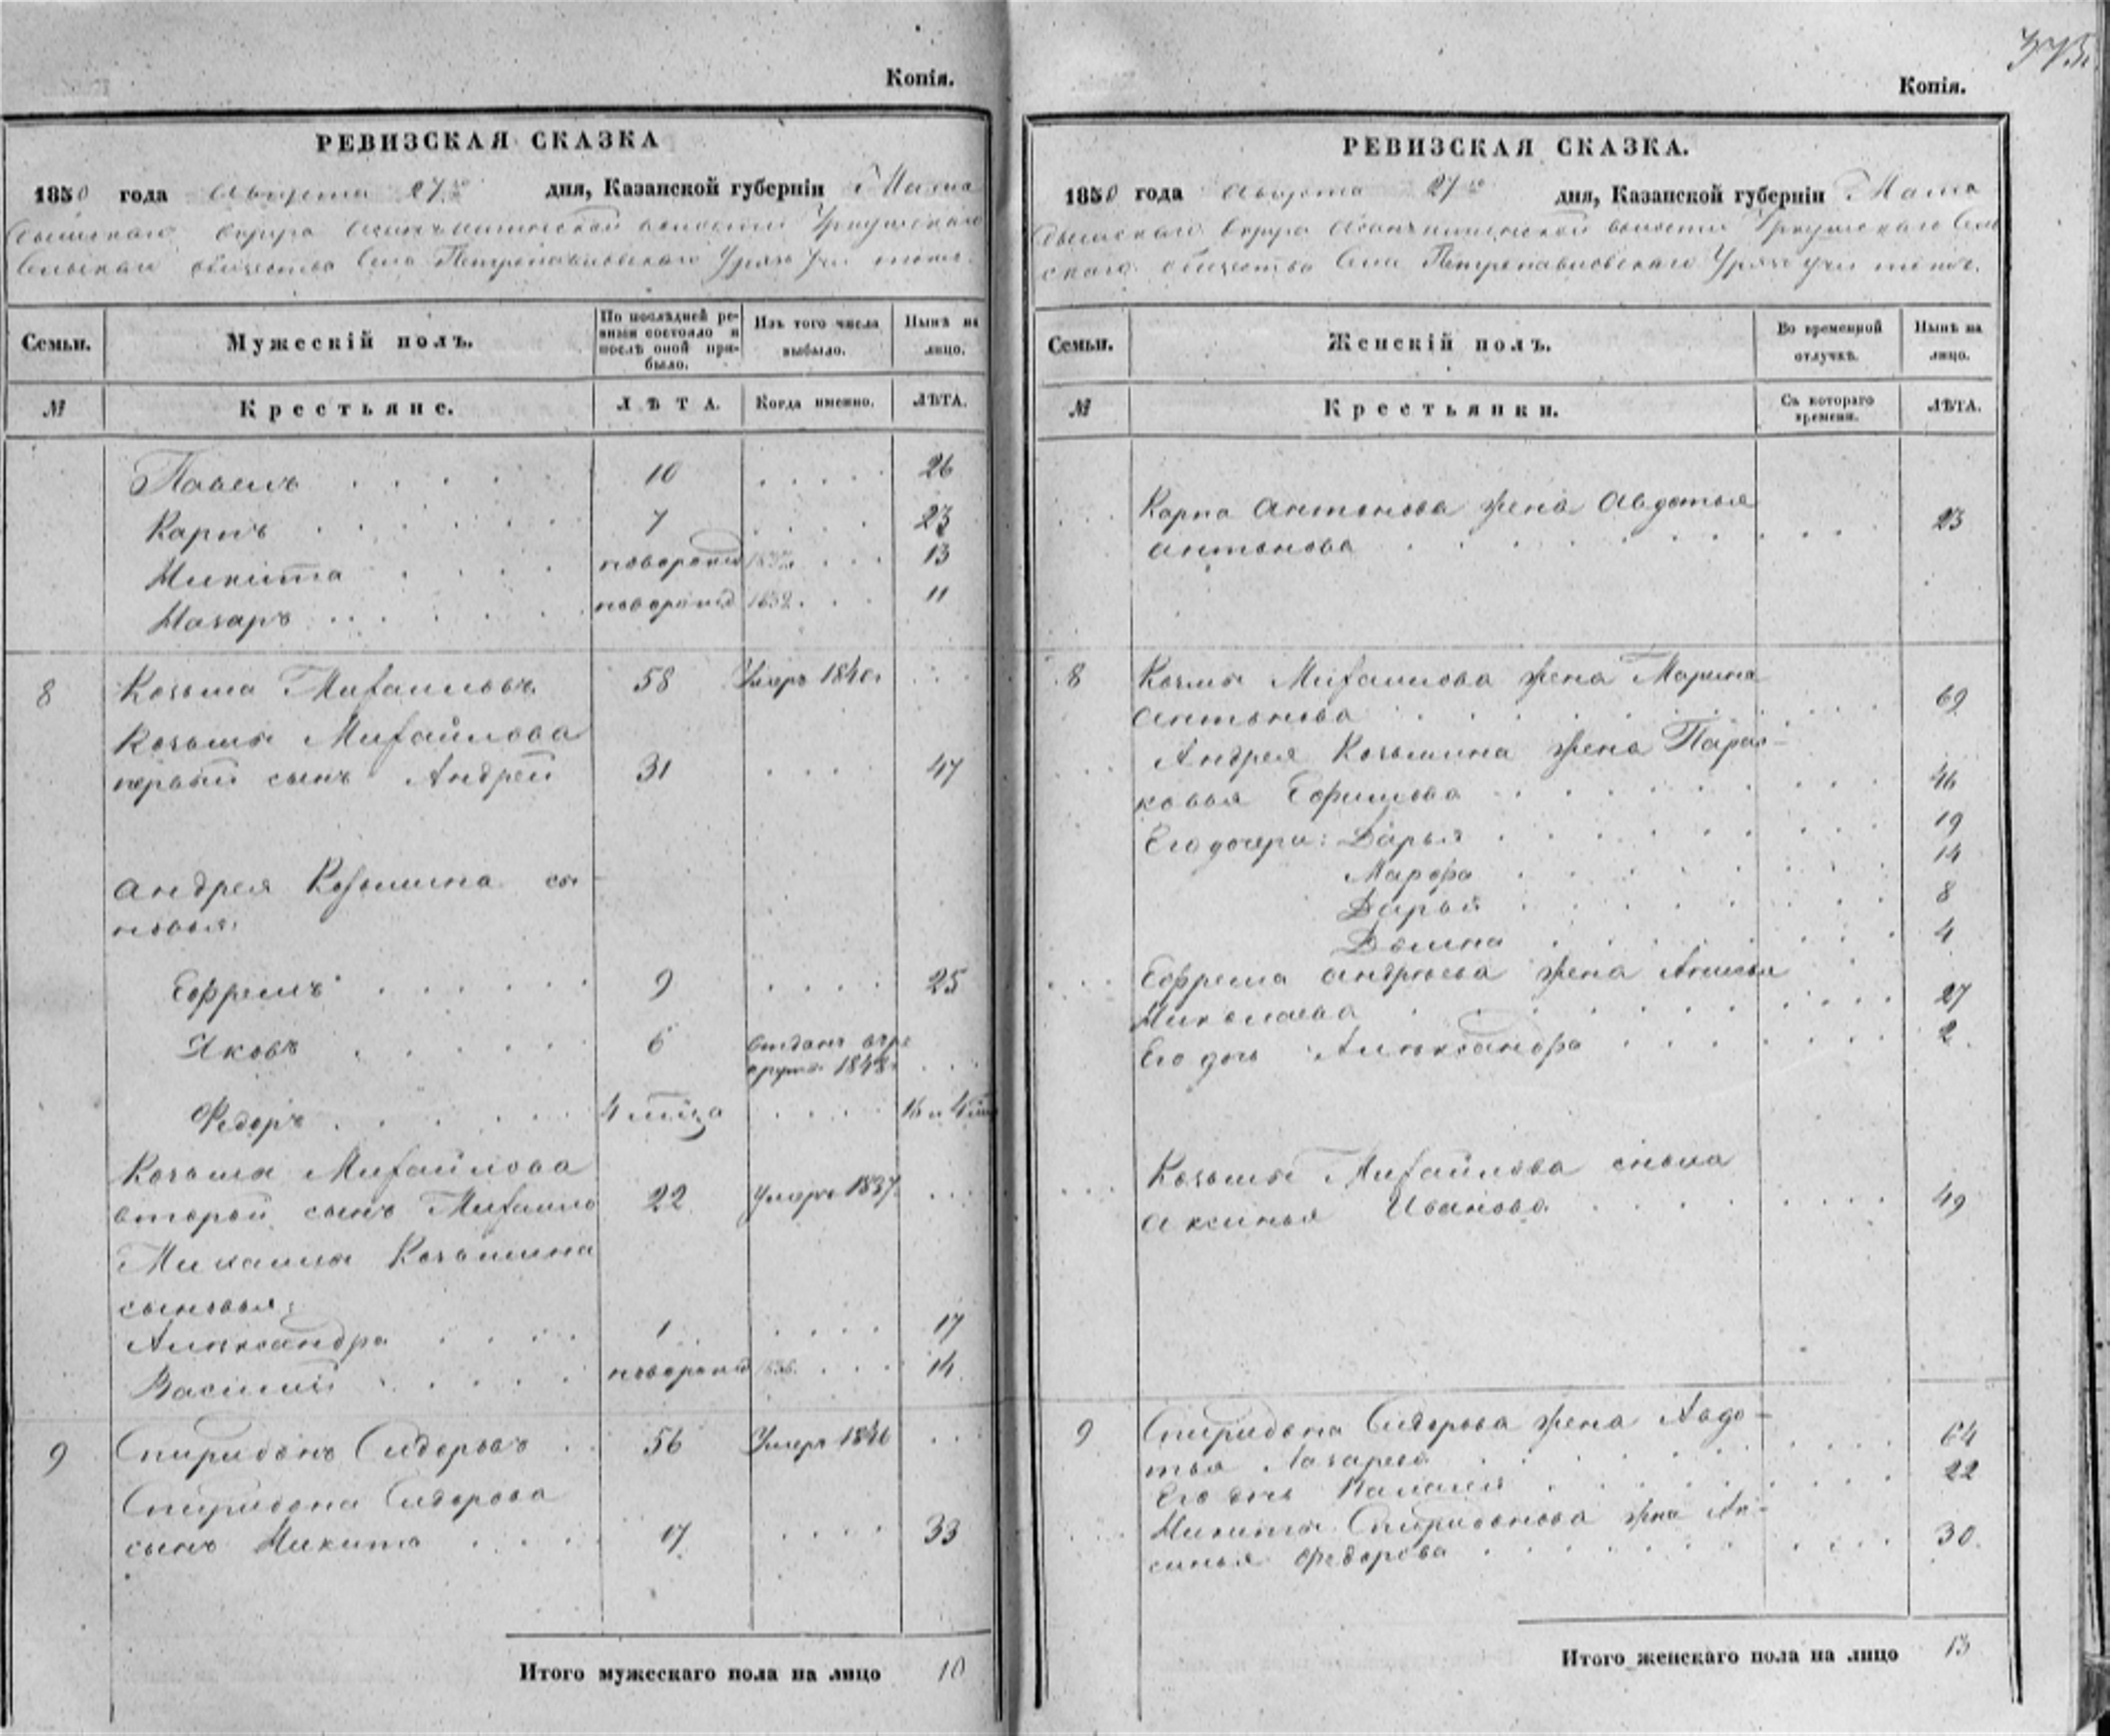 Копія.
РЕВИЗСКАЯ СКАЗКА
1850 года Августа 27го дня, Казанской губерніи г. Мама
дышскаго округа волости
Сельскаго общества Села Петропавловскаго Урясь Учи тожъ.
Семьи. Мужескій полъ. По послѣдней ревизіи состояло и послѣ оной прибыло. Изъ того числа выбыло. Нынѣ на лицо.
№ Крестьяне. ЛѢТА. Когда именно. ЛѢТА.
Павелъ 10 26
Карпъ 7 23
Никита новорожд 13
Назаръ новорожд 1839 11
8 Козьма Михаиловъ 58 Умеръ 1840
Козьмы Михайлова
первый сынъ Андрей 31 47
Андрея Козьмина сы-
новья:
Ефремъ 9 25
Яковъ 6 отданъ въ ре
круты 1848
Федоръ 4 мѣца 16 и 4
Козьма Михайлова
второй сынъ Михаило 22 умеръ 1837
Михаила Козьмина
сыновья:
Александра 1 17
Василий новорожд 1836 14
9 Спиридонъ Сидоровъ 56 Умеръ 1846
Спиридона Сидорова
сынъ Никита 17 33
Итого мужескаго пола на лицо 10
Копія.
РЕВИЗСКАЯ СКАЗКА.
1850 года Августа 27го дня, Казанской губерніи Мама
дышскаго округа волости Сель
скаго общества Села Петропавловскаго Урясь Учи тожъ.
Семьи. Женскій полъ. Во временной отлучкѣ. Нынѣ на лицо.
№ Крестьянки. Съ котораго времени. ЛѢТА.
Карпа Антонова жена Авдотья
Антонова 23
8 Козмы Михаилова жена Марина
Антонова 69
Андрея Козьмина жена Парас-
ковья Ефимова 46
Его дочери: Дарья 19
Марфа 14
Дарья 8
Домна 4
Ефрема Андрѣева жена
Николаева 27
Его дочь Александра 2
Козьмы Михайлова сноха
Аксинья Иванова 49
9 Спиридона Сидорова жена Авдо-
тья Лазарева 64
Его дочь 22
Никиты Спиридонова жена Ак-
синья Федорова 30
Итого женскаго пола на лицо 13